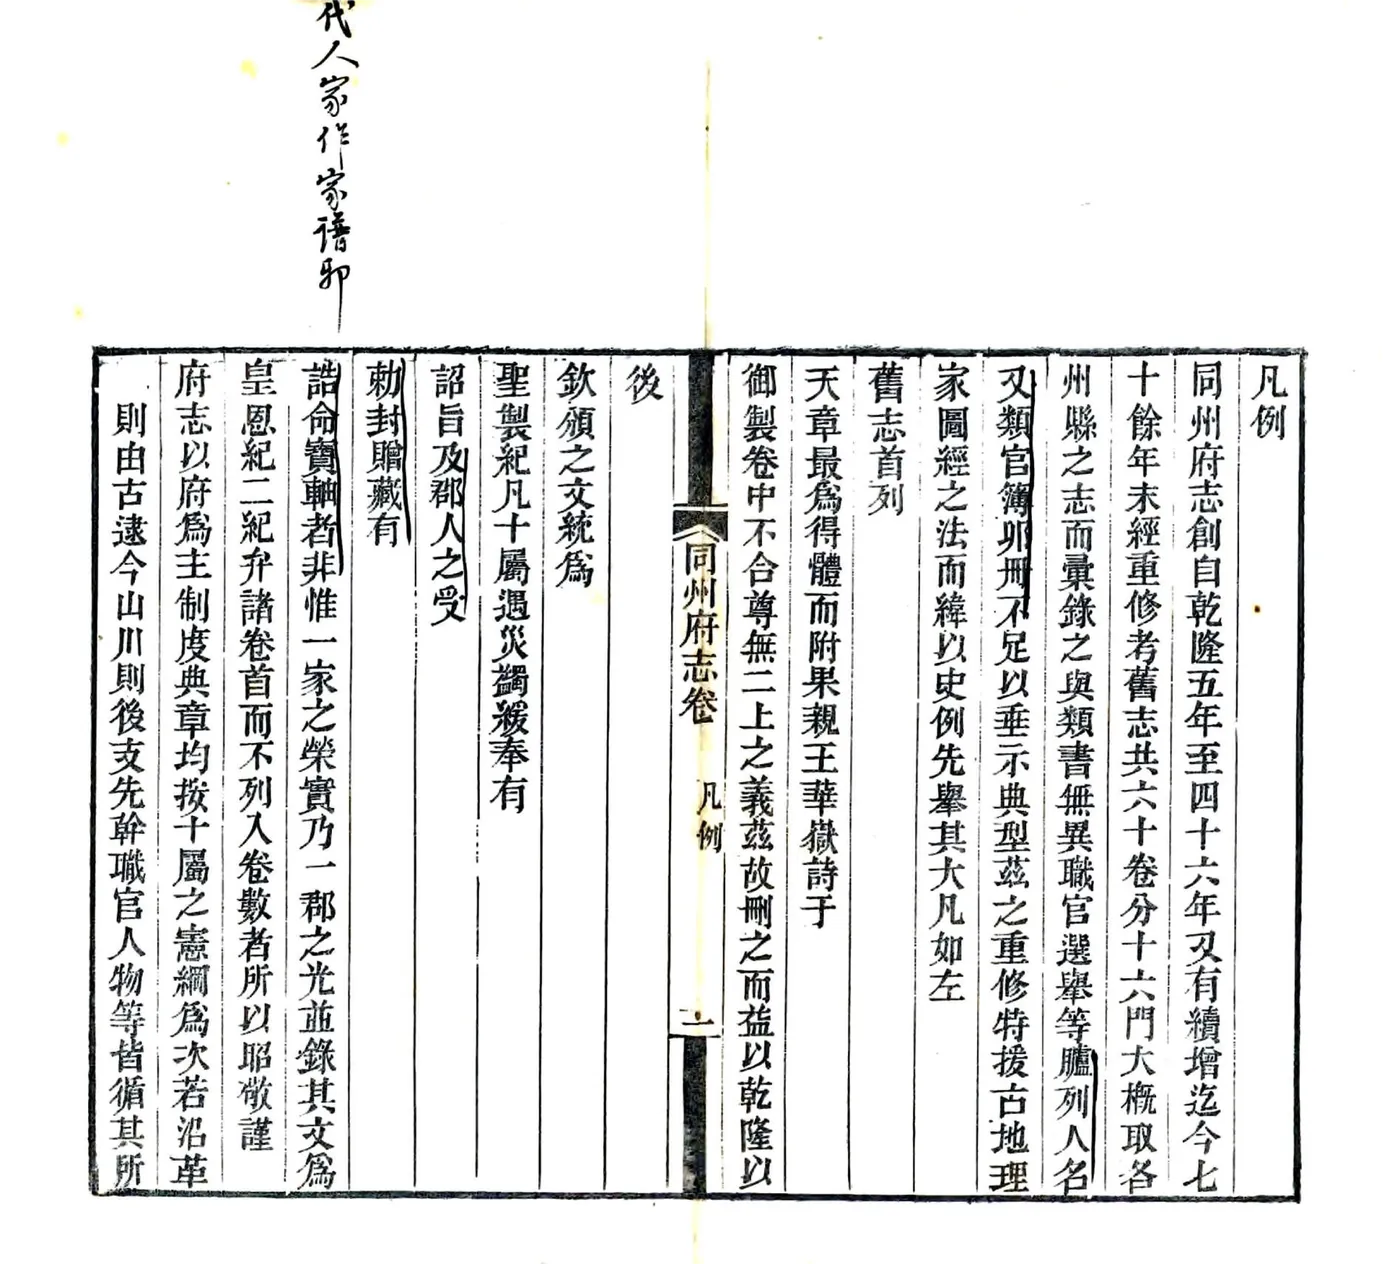 代人家作家譜邪
凡例
同州府志創自乾隆五年至四十六年又有續增迄今七
十餘年未經重修考舊志共六十卷分十六門大槪取各
州縣之志而彙錄之與類書無異職官選舉等臚列人名
又類官簿卯冊不足以垂示典型茲之重修特援古地理
家圖經之法而緯以史例先舉其大凡如左
舊志首列
天章最爲得體而附果親王華嶽詩于
御製卷中不合尊無二上之義茲故刪之而益以乾隆以
同州府志卷
凡例
一
後
欽頒之文統爲
聖製紀凡十屬遇災蠲緩奉有
詔旨及郡人之受
勅封贈藏有
誥命寶軸者非惟一家之榮實乃一郡之光並錄其文爲
皇恩紀二紀弁諸卷首而不列入卷數者所以昭敬謹
府志以府爲主制度典章均按十屬之憲綱爲次若沿革
則由古逮今山川則後支先幹職官人物等皆循其所